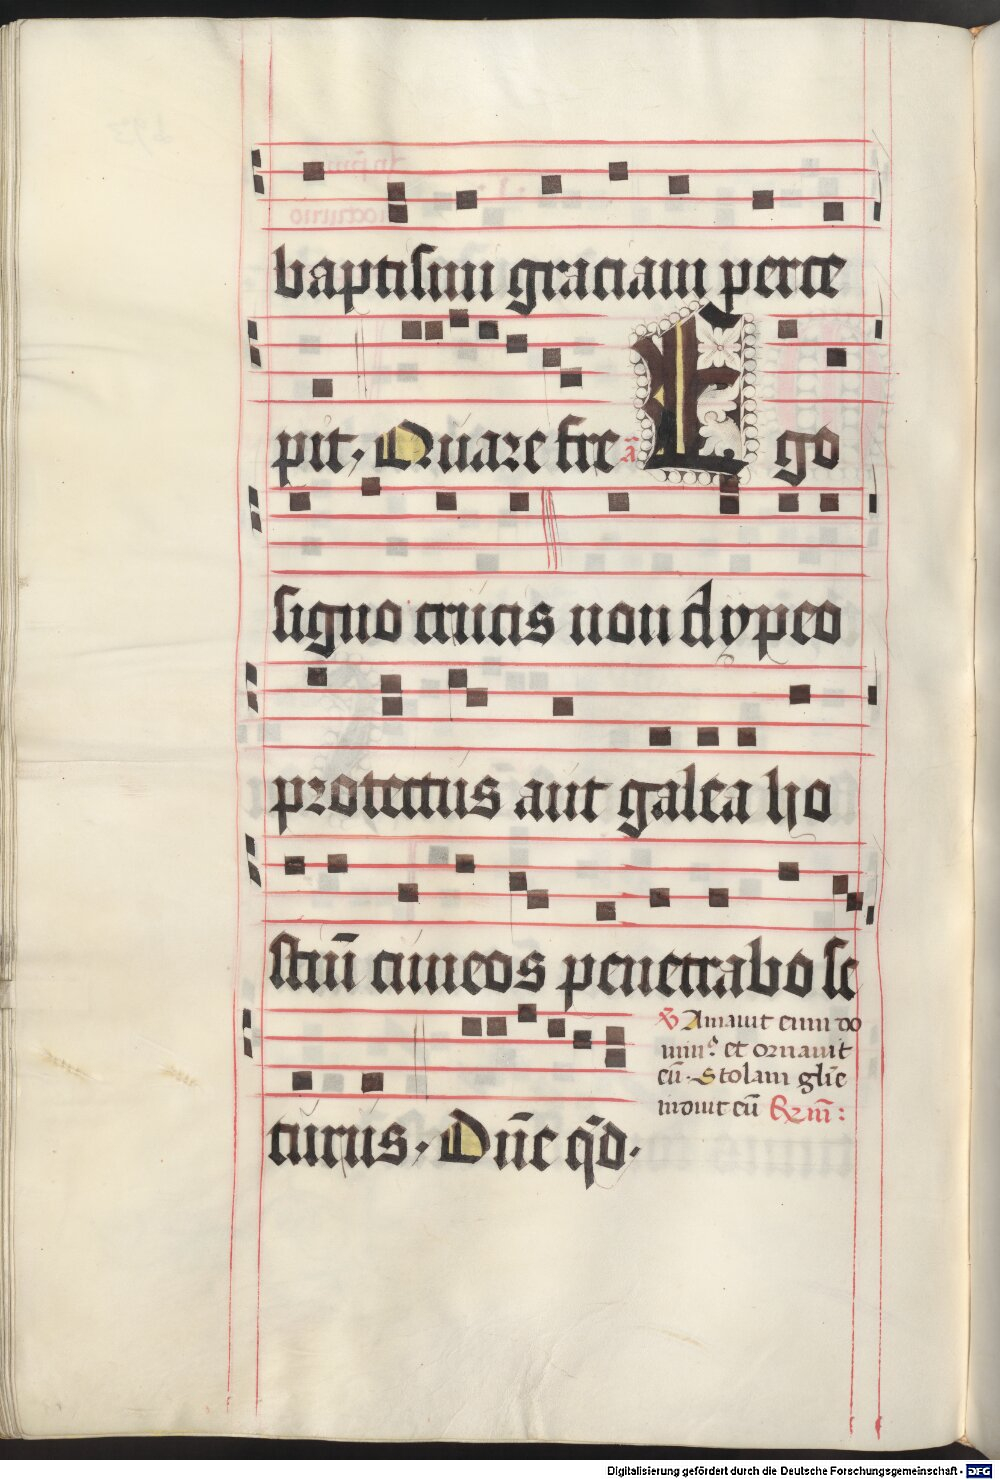 baptismi graciam perce
pit, Quare fre ā Ego
signo crucis non clypeo
protectus aut galea ho
stiū cuneos penetrabo se
℣ Amauit eum do
minꝰ et ornauit
eū. Stolam glīe
induit eū
turus, Dn̄e qd.
Digitalisierung gefördert durch die Deutsche Forschungsgemeinschaft - DFG